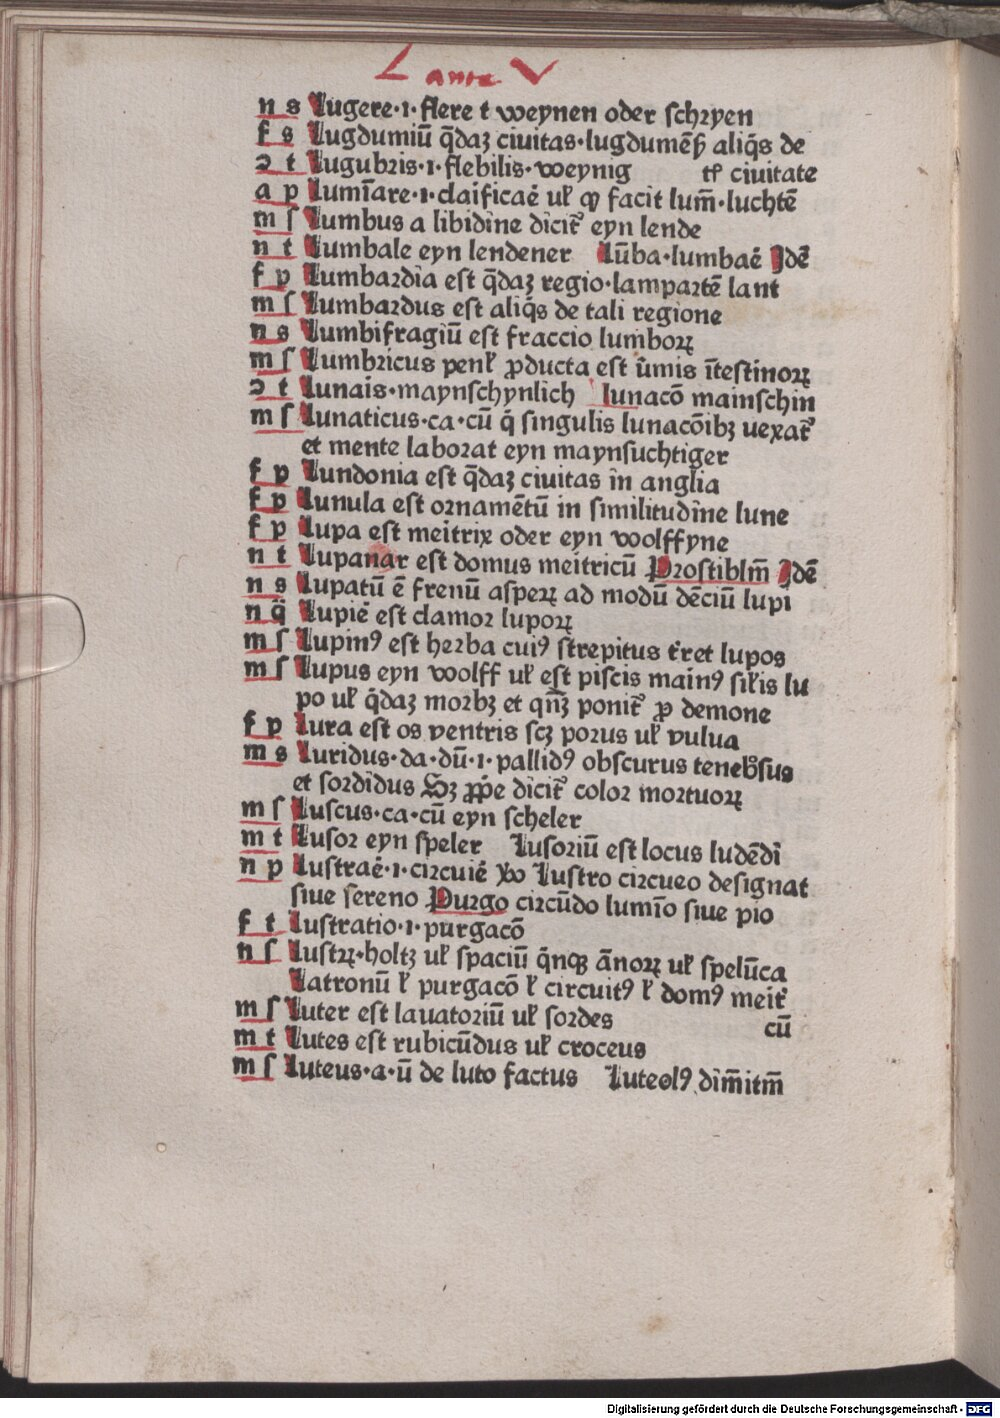 L ante V
n s Lugere·i·flere t weynen oder schꝛyen
f s Lugdumiū q̄daꝫ ciuitas·lugdumēß aliq̄s de
ɔ t Lugubꝛis·i·flebilis·weynig tꝉ ciuitate
a p Lumīare·i·claificaē uꝉ ꝙ facit lum̄·luchtē
m ſ Lumbus a libidine dicit᷑ eyn lende
n t Lumbale eyn lendener Lūba·lumbaē Jdē
f p Lumbaꝛdia est q̄daꝫ regio·lampaꝛtē lant
m ſ Lumbaꝛdus est aliq̄s de tali regione
n s Lumbifragiū est fraccio lumboꝝ
m ſ Lumbꝛicus penꝉ ꝓducta est ūmis ītestinoꝝ
ɔ t Lunais·maynschynlich lunacō mainschin
m ſ Lunaticus·ca·cū q̄ singulis lunacōibꝫ uexat᷑
et mente laboꝛat eyn maynsuchtiger
f p Lundonia est q̄daꝫ ciuitas in anglia
f p Lunula est oꝛnamētū in similitudine lune
f p Lupa est meitrix oder eyn wolffyne
n t Lupanar est domus meitricū Pꝛostiblm̄ Jdē
n s Lupatū ē frenū asperꝝ ad modū dēciū lupi
n q̄ Lupiē est clamoꝛ lupoꝝ
m ſ Lupinꝰ est heꝛba cuiꝰ strepitus t᷑ret lupos
m ſ Lupus eyn wolff uꝉ est piscis mainꝰ siꝉis lu
po uꝉ q̄daꝫ moꝛbꝫ et qn̄ꝫ ponit᷑ ꝓ demone
f p Lura est os ventris scꝫ poꝛus uꝉ vulua
m s Luridus·da·dū·i·pallidꝰ obscurus teneb᷑sus
et soꝛdidus Sꝫ ꝓp̄e dicit᷑ coloꝛ moꝛtuoꝝ
m ſ Luscus·ca·cū eyn scheler
m t Lusoꝛ eyn speler Lusoꝛiū est locus ludēdi
n p Lustraē·i·ciꝛcuiē Lustro ciꝛcueo designat
siue sereno Puꝛgo ciꝛcūdo lumīo siue pio
f t Lustratio·i·puꝛgacō
n ſ Lustꝝ·holtꝫ uꝉ spaciū q̄nqꝫ ānoꝝ uꝉ spelūca
Latronū ꝉ puꝛgacō ꝉ circuitꝰ ꝉ domꝰ meit᷑
m ſ Luter est lauatoꝛiū uꝉ soꝛdes cū
m t Lutes est rubicūdus uꝉ croceus
m ſ Luteus·a·ū de luto factus Luteolꝰ dim̄itm̄
Digitalisierung gefördert durch die Deutsche Forschungsgemeinschaft · DFG